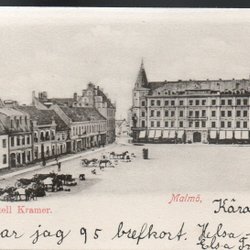 Malmö,
tell Kramer.
Kära
ar jag 95 brefkort. Helsa
Elsa